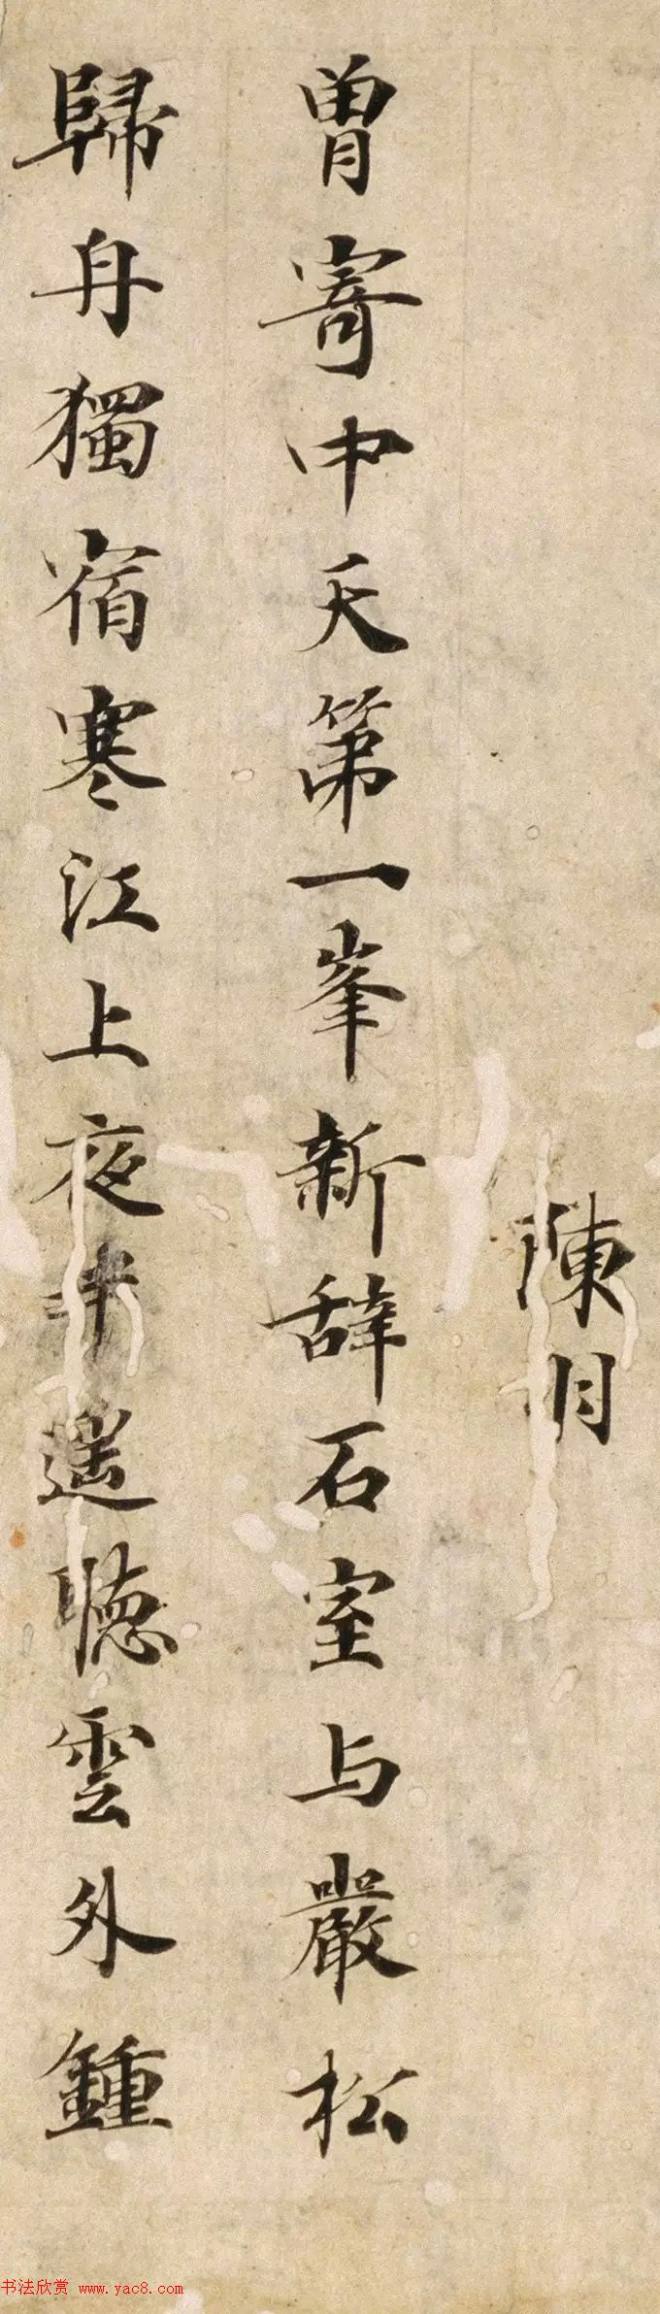 陳月
曽寄中天第一峯新辞石室与巖松
歸舟獨宿寒江上夜半遥聴雲外鍾
书法欣赏 www.yac8.com